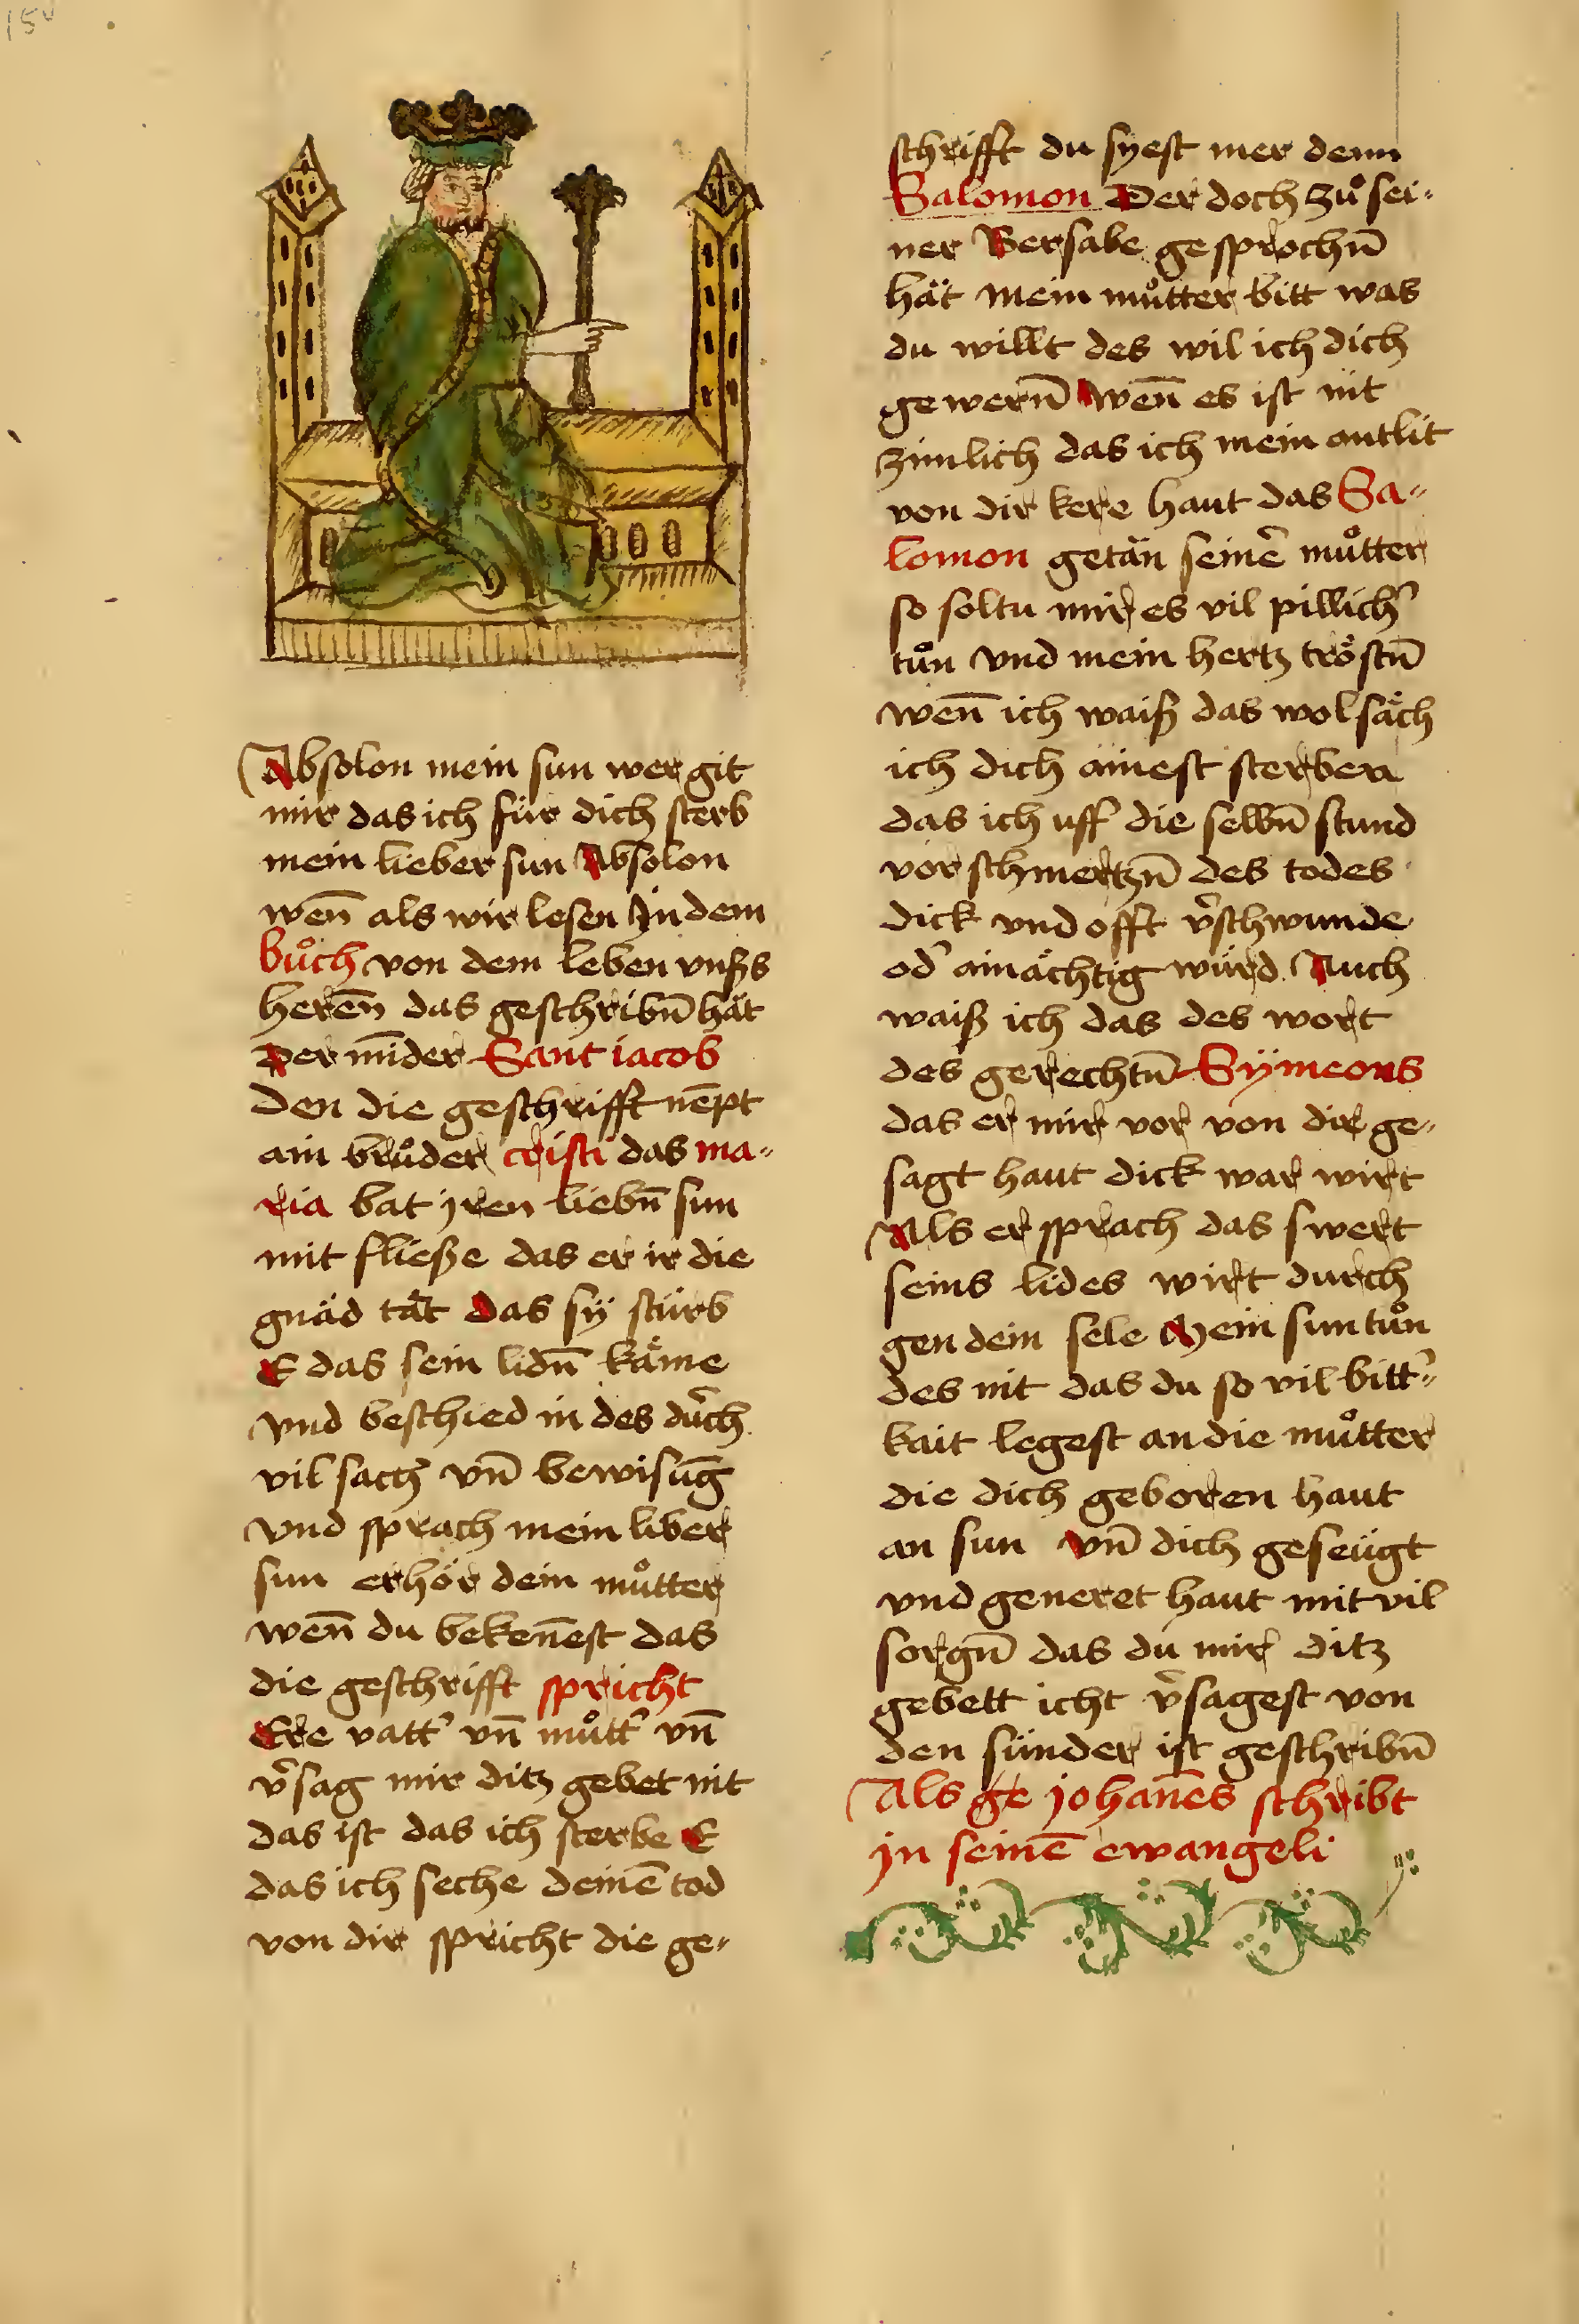 15v
Absolon mein sun wer git
mir das ich für dich sterb
mein lieber sun Absolon
wen̄ als wir lesen Jn dem
bůch von dem leben vnßs
heren̄ das geschribn̄ hät
Der mīder Sant iacob
den die geschrifft nēpt
ain brůder cristi das ma-
ria bat jren liebn̄ sun
mit fließe das er ir die
gnäd tät das sÿ stürb
E das sein lidn̄ käme
vnd beschied in des durch
vil sach vn̄ bewisūg
vnd sprach mein liber
sun erhör dein můtter
wen̄ du beken̄est das
die geschrifft spricht
Ere vatt' vn̄ můtt' vn̄
v'sag mir ditz gebet nit
das ist das ich sterbe E
das ich seche deinē tod
von dir spricht die ge-
schrifft du syest mer denn
Salomon Der doch zů sei-
ner Bersabe gesprochn̄
hät mein můtter bitt was
du willt des wil ich dich
gewern̄ wen̄ es ist nit
zimlich das ich mein antlit
von dir kere haut das Sa-
lomon getän seinē můtter
so soltu mir es vil pillich'
tůn vnd mein hertz tröstn̄
wen̄ ich waiß das wol säch
ich dich ainest sterben
das ich uff die selbn̄ stund
vor schmertzn̄ des todes
dick vnd offt v'schwunde
od' amächtig würd Auch
waiß ich das des wort
des gerechtn̄ Sÿmeons
das er mir vor von dir ge-
sagt haut dick war wirt
Als er sprach das swert
seins lides wirt durch
gen dein sele Mein sun tůn
des nit das du so vil bitt'-
kait legest an die můtter
die dich geboren haut
an sun vn̄ dich geseügt
vnd generet haut mit vil
sorgn̄ das du mir ditz
gebett icht v'sagest von
den sünder ist geschribn̄
Als ge johan̄es schribt
jn seinē ewangeli